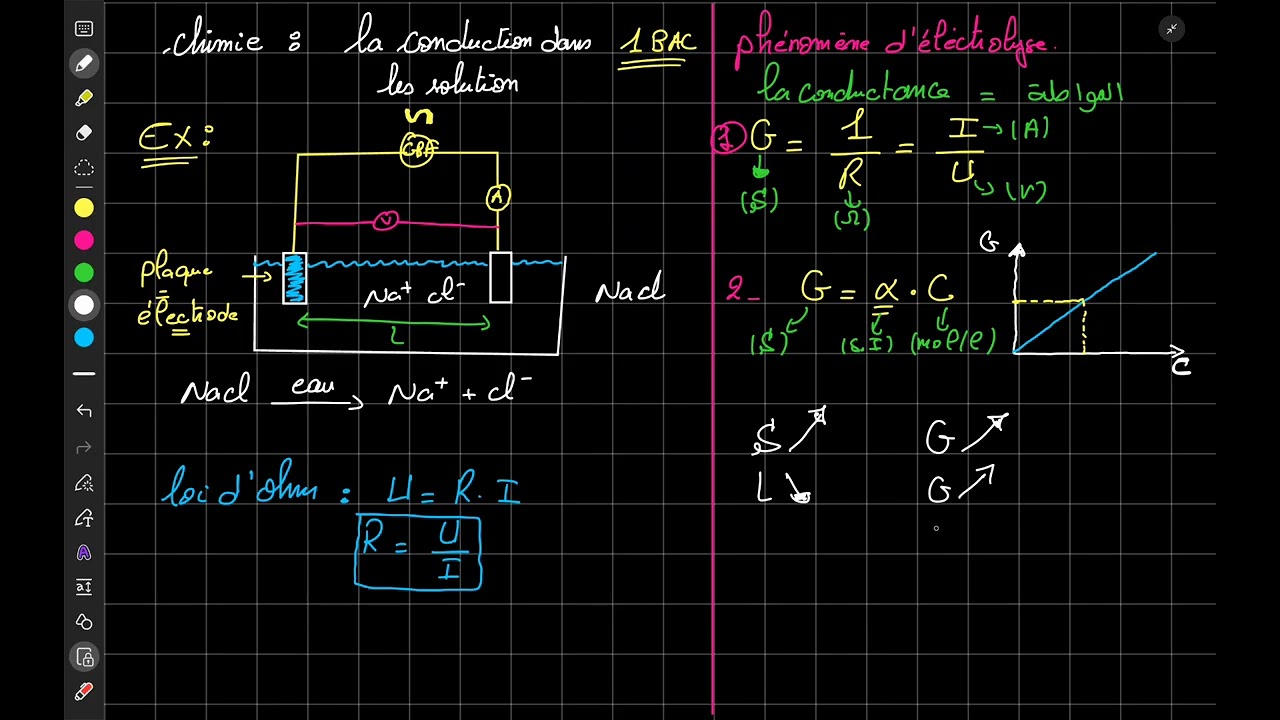 chimie : la conduction dans 1 BAC
les solution
Ex :
GBF
A
V
plaque
électrode
Na⁺ Cl⁻
L
NaCl
NaCl eau → Na⁺ + Cl⁻
loi d'ohm : U = R . I
R = U/I
phénomène d'éléctrolyse.
la conductance =
1 G = 1/R = I/U → (A)
(S) (Ω) (V)
2 - G = α . C
(S) (S.I) (mol/l)
G
C
S ↗ G ↗
L ↘ G ↗